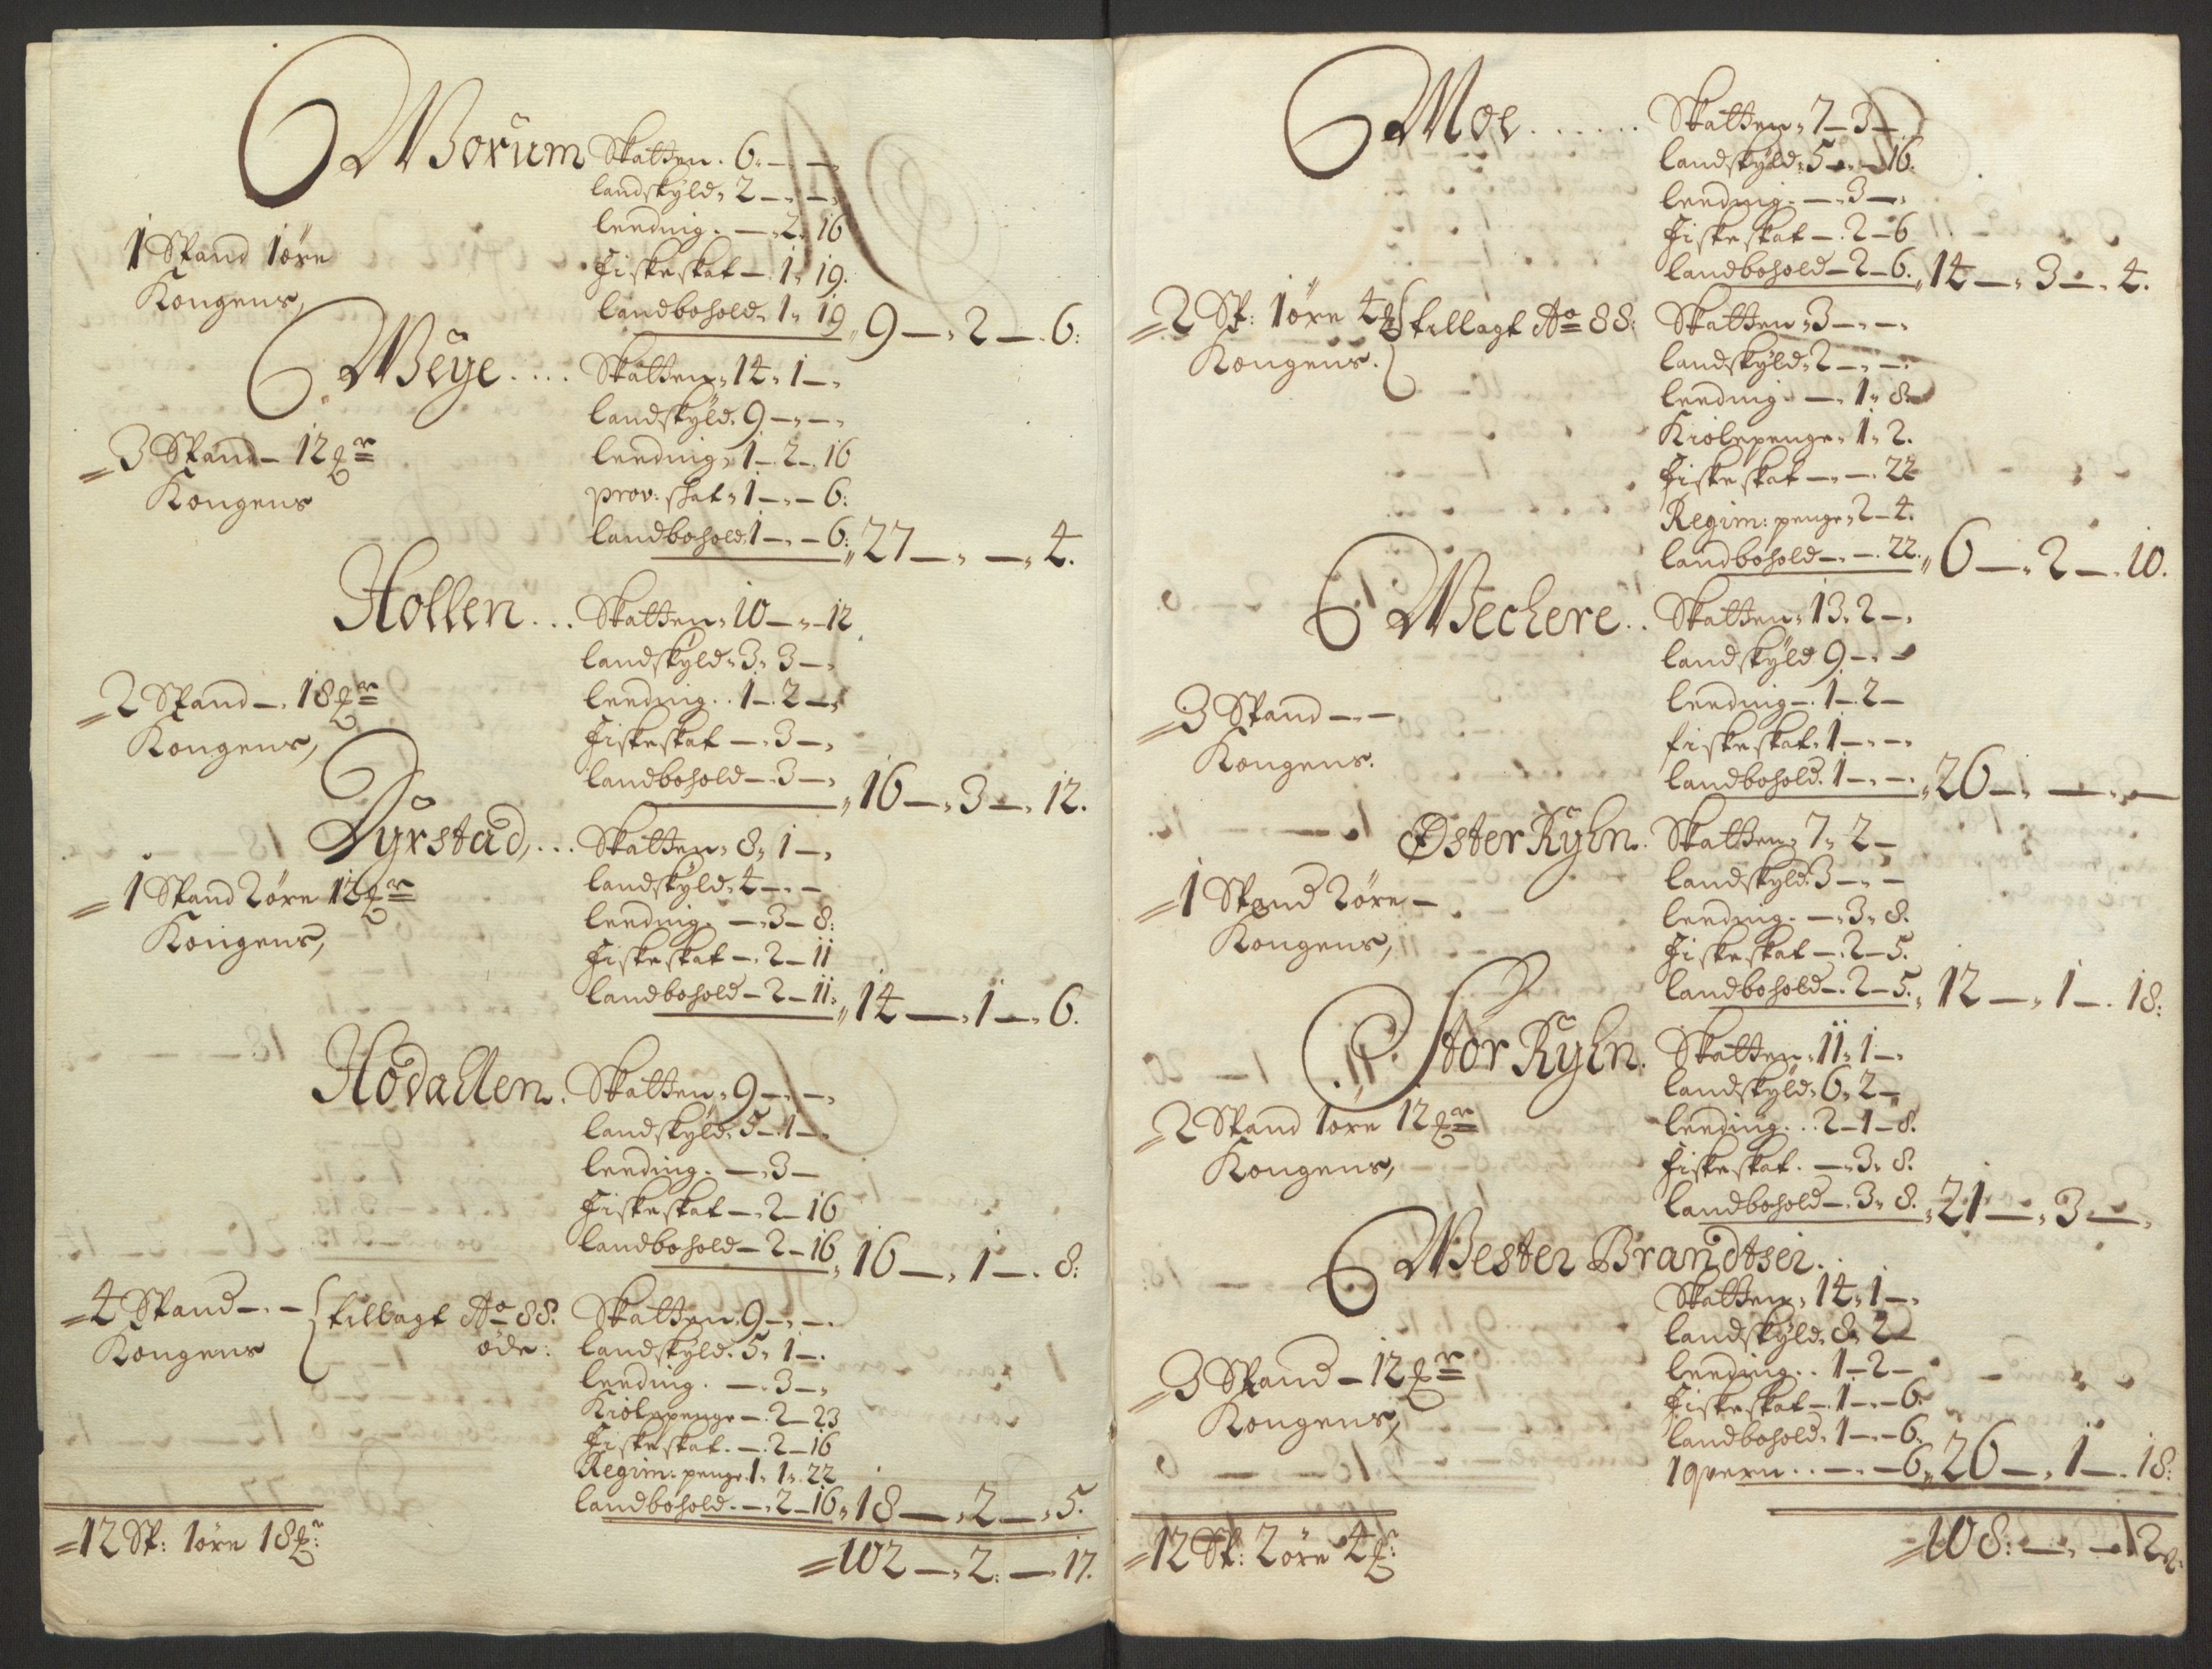 Worum Skatten 6 — —
landskyld 2 — —
leeding — 2 16
1 Spand 1 öre
fiskeskat — 1 19.
Kongens,
landbohold 1 19 9 — 2 — 6:
Weye .... Skatten 14 1 —
landskyld 9 — —
3 Spand — 12
leeding 1 — 2 — 16
Kongens
prov: skat 1 — — 6:
landbohold 1 — — 6: 27 — — 4.
Hollen ... Skatten 10 — — 12
landskyld 3 3 —
2 Spand — 18
leeding .. 1 — 2 —
Kongens,
fiskeskat — 3 —
landbohold — 3 — 16 — 3 — 12.
Dyrstad, ... Skatten 8 1 —
1 Spand 2 öre
landskyld 4 — —
leeding — 3 — 8:
Kongens,
fiskeskat — 2 — 11
landbohold — 2 — 11: 14 — 1 — 6.
Hodallen. Skatten 9 — —
landskyld 5 — 1 —
leeding. — 3 —
fiskeskat — 2 — 16
landbohold — 2 — 16 16 — 1 — 8:
4 Spand — — tillagt Ao 88: Skatten 9 — —
Kongens öde: landskyld 5 1 —
leeding. — 3 —
Kiölepenge — 2 — 23
fiskeskat. — 2 — 16
Regim: penge 1 1 22
landbohold. — 2 — 16 18 — 2 — 5.
12 Sp: 1 öre 18
102 — 2: — 17.
Moe ...... Skatten 7 — 3 —
landskyld 5 — — 16.
leeding. — 3 —
fiskeskat — 2 — 6
landbohold — 2 — 6. 14 — 3 — 4.
2 Sp: 1 öre 4 tillagt Ao 88: Skatten 3 — —
Kongens. landskyld 2 — —
leeding — 1 8
Kiölepenge 1 2.
fiskeskat — — 22
Regim: penge 2 — 4.
landbohold — — 22. 6 — 2 — 10.
Wechere .. Skatten 13 2 —
landskyld 9 — —
3 Spand — —
leeding — 1 — 2 —
Kongens.
fiskeskat 1 — —
landbohold 1 — — 26 — — —
Øster Ryhn. Skatten 7 2 —
1 Spand 2 öre —
landskyld 3 — —
leeding. — 3 8.
Kongens,
fiskeskat — 2 — 5.
landbohold — 2 — 5. 12 — 1 — 18:
Stor Ryhn. Skatten 11 1 —
landskyld 6 2 —
2 Spand 1 öre 12
leeding ... 2 — 1 — 8.
Kongens,
fiskeskat. — 3 8.
landbohold — 3 8. 21 — 3 —
Wester Brandtsei.
Skatten 14 1 —
landskyld 8 2 —
3 Spand — 12
leeding .. 1 — 2 —
Kongens,
fiskeskat — 1 — — 6
landbohold 1 — — 6.
1 qvern .. — — 6 26 — 1 — 18:
12 Sp: 2 öre 4
108: — —